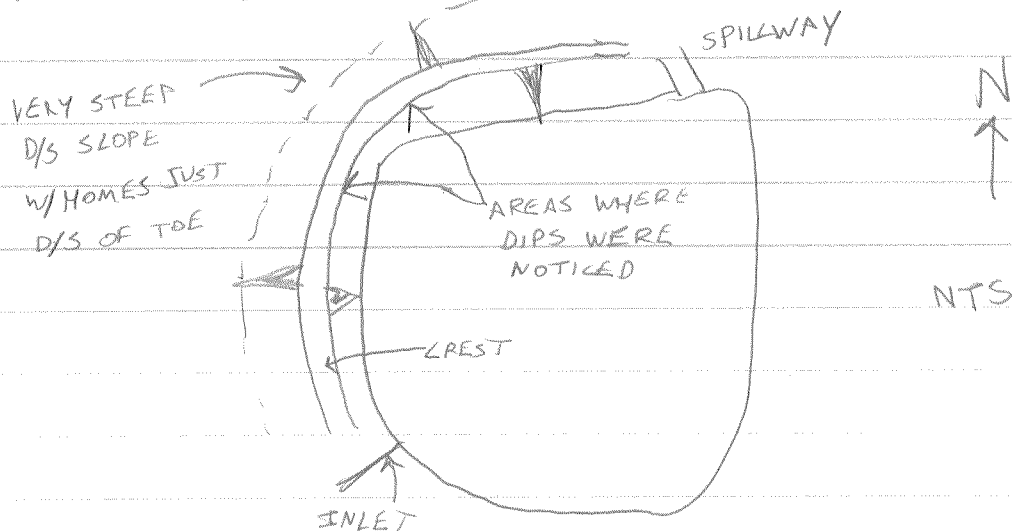 SPILLWAY
N
VERY STEEP
D/S SLOPE
W/ HOMES JUST
D/S OF TOE
AREAS WHERE
DIPS WERE
NOTICED
NTS
CREST
INLET